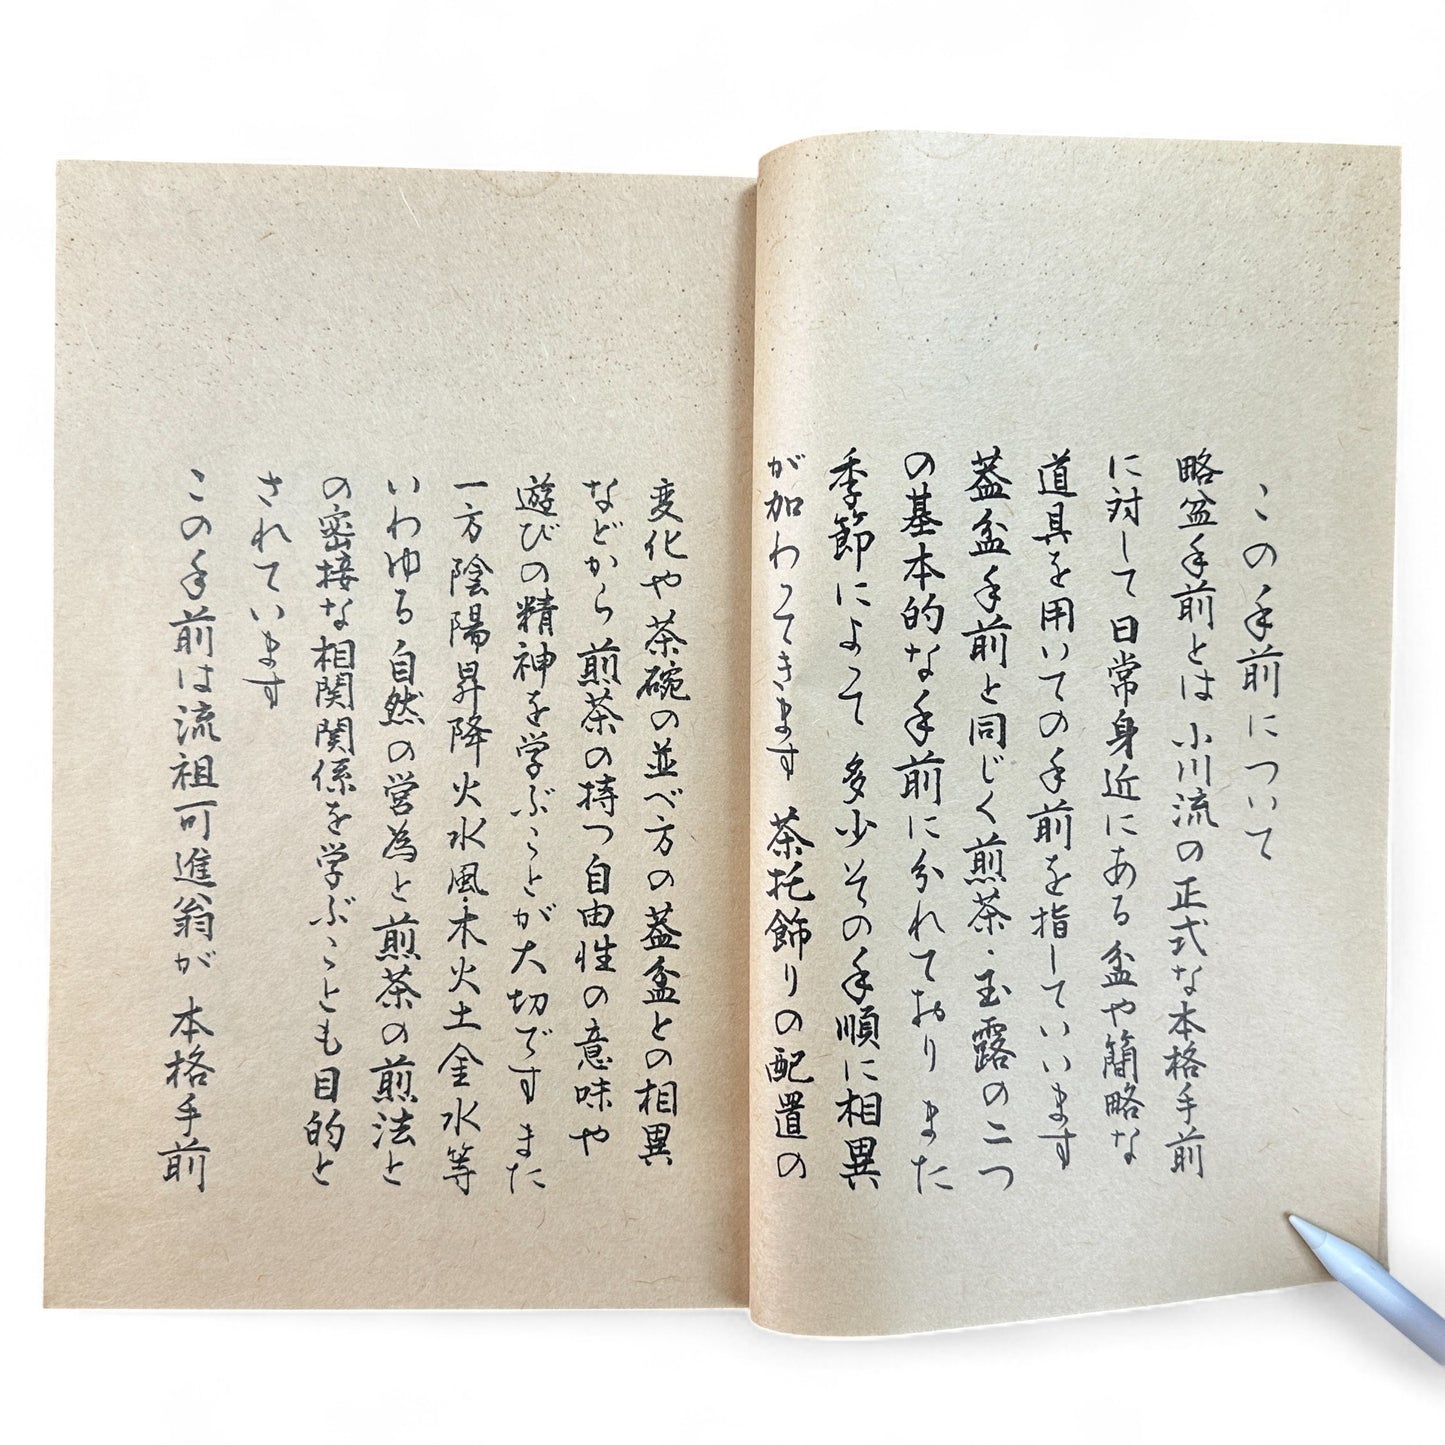 この手前について
略盆手前とは小川流の正式な本格手前
に対して日常身近にある盆や簡略な
道具を用いての手前を指していいます
蓋盆手前と同じく煎茶・玉露の二つ
の基本的な手前に分れており また
季節によって多少その手順に相異
が加わってきます 茶托飾りの配置の
変化や茶碗の並べ方の蓋盆との相異
などから煎茶の持つ自由性の意味や
遊びの精神を学ぶことが大切です また
一方陰陽昇降火水風・木火土金水等
いわゆる自然の営為と煎茶の煎法と
の密接な相関関係を学ぶことも目的と
されています
この手前は流祖可進翁が 本格手前